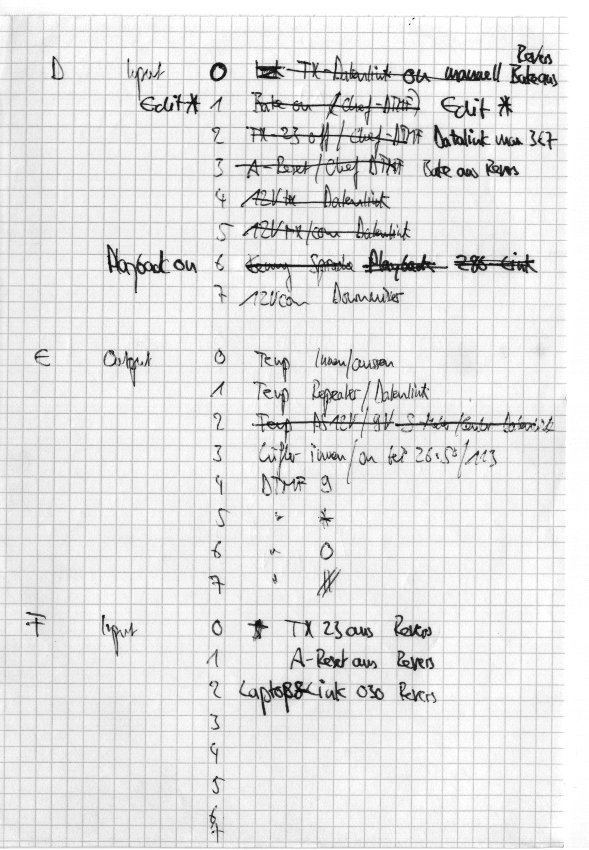 Revers
D Input 0 TX-Datenlink on manuell Bake aus
Edit * 1 Bake on (Chef-DTMF) Edit *
2 TX-23 off / Chef-DTMF Datalink man 3€7
3 A-Reset / Chef DTMF Bake aus Revers
4 12V tx Datenlink
5 12V tx/com Datenlink
Playback on 6 Sprache Playback Link
7 12V com
E Output 0 Temp Innen/aussen
1 Temp Repeater / Datenlink
2 Temp 12V / 9V Datenlink
3 Lüfter innen / on bei 26.5° / 113
4 DTMF 9
5 " *
6 " 0
7 " #
F Input 0 TX 23 aus Revers
1 A-Reset aus Revers
2 Laptop Link 030 Revers
3
4
5
6
7